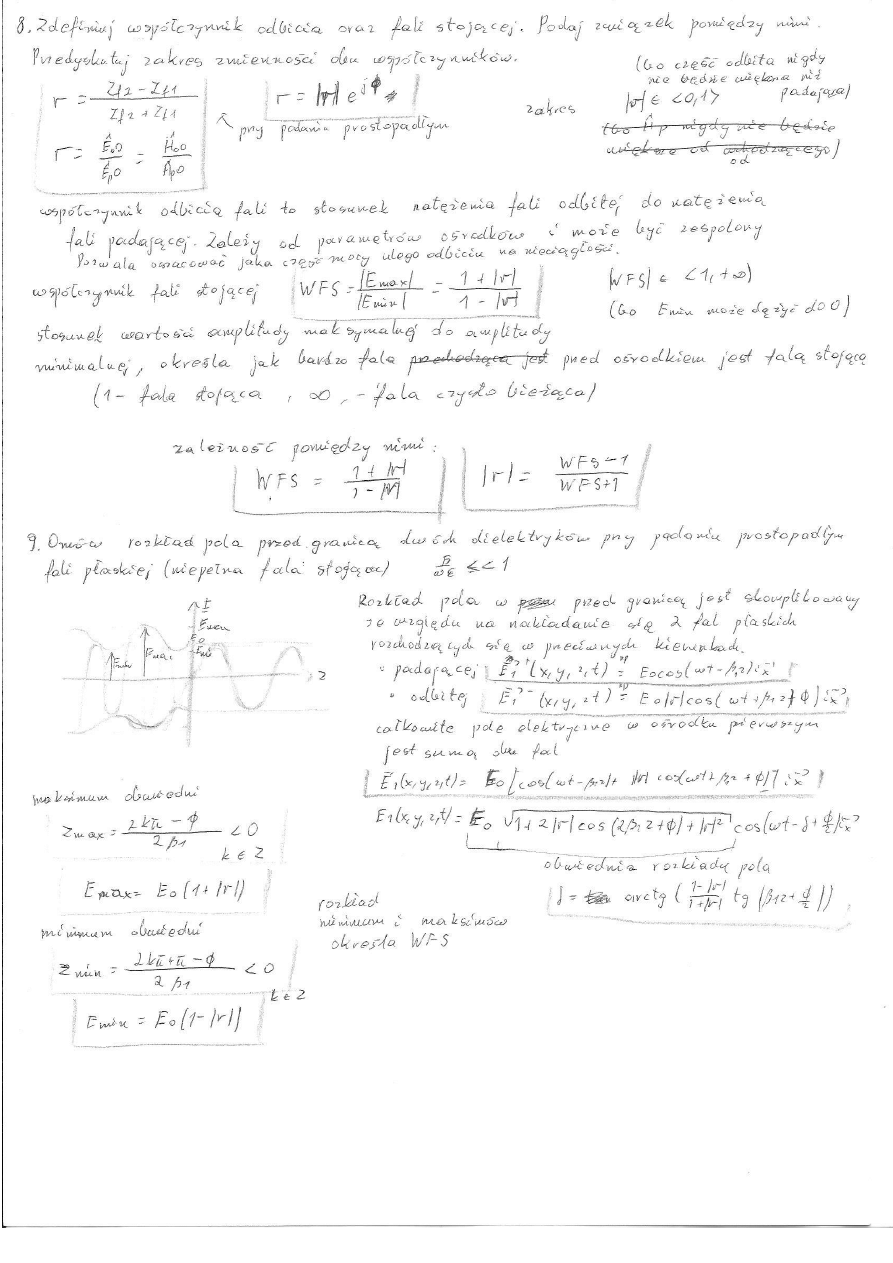 8. Zdefiniuj współczynnik odbicia oraz fali stojącej. Podaj związek pomiędzy nimi.
Przedyskutuj zakres zmienności obu współczynników.
r = (Zf2 - Zf1) / (Zf2 + Zf1)
r = |r| e^{jϕ}
przy padaniu prostopadłym
r = Ê₀₀ / Êp0 = Ĥ₀₀ / Ĥp0
zakres |r| ∈ <0,1>
(bo część odbita nigdy
nie będzie większa niż
padająca)
(bo Hp nigdy nie będzie
większe od wchodzącego)
od
współczynnik odbicia fali to stosunek natężenia fali odbitej do natężenia
fali padającej. Zależy od parametrów ośrodków i może być zespolony
Pozwala oszacować jaka część mocy ulega odbiciu na nieciągłości.
współczynnik fali stojącej WFS = |Emax| / |Emin| = (1 + |r|) / (1 - |r|)
|WFS| ∈ <1, +∞)
(bo Emin może dążyć do 0)
stosunek wartości amplitudy maksymalnej do amplitudy
minimalnej, określa jak bardzo fala przechodząca jest przed ośrodkiem jest falą stojącą
(1 - fala stojąca, ∞, - fala czysto bieżąca)
zależność pomiędzy nimi:
WFS = (1 + |r|) / (1 - |r|)
|r| = (WFS - 1) / (WFS + 1)
9. Omów rozkład pola przed granicą dwóch dielektryków przy padaniu prostopadłym
fali płaskiej (niepełna fala stojąca) σ/ωε << 1
E
Emax
E0
Emin
Emin
Emax
z
Rozkład pola w przed granicą jest skomplikowany
ze względu na nakładanie się 2 fal płaskich
rozchodzących się w przeciwnych kierunkach.
• padającej E₁⁺(x,y,z,t) = E₀cos(ωt - β₁z) i⃗x
• odbitej E₁⁻(x,y,z,t) = E₀|r|cos(ωt + β₁z + ϕ) i⃗x
całkowite pole elektryczne w ośrodku pierwszym
jest sumą obu fal
E₁(x,y,z,t) = E₀[cos(ωt - β₁z) + |r| cos(ωt + β₁z + ϕ)] i⃗x
E₁(x,y,z,t) = E₀ √(1 + 2|r| cos(2β₁z + ϕ) + |r|²) cos(ωt - δ + ϕ/2) i⃗x
obwiednia rozkładu pola
δ = arctg( (1-|r|)/(1+|r|) tg(β₁z + ϕ/2))
maksimum obwiedni
Zmax = (2kπ - ϕ) / 2β₁ < 0
k ∈ Z
Emax = E₀(1 + |r|)
minimum obwiedni
Zmin = (2kπ + π - ϕ) / 2β₁ < 0
k ∈ Z
Emin = E₀(1 - |r|)
rozkład
minimum i maksimów
określa WFS